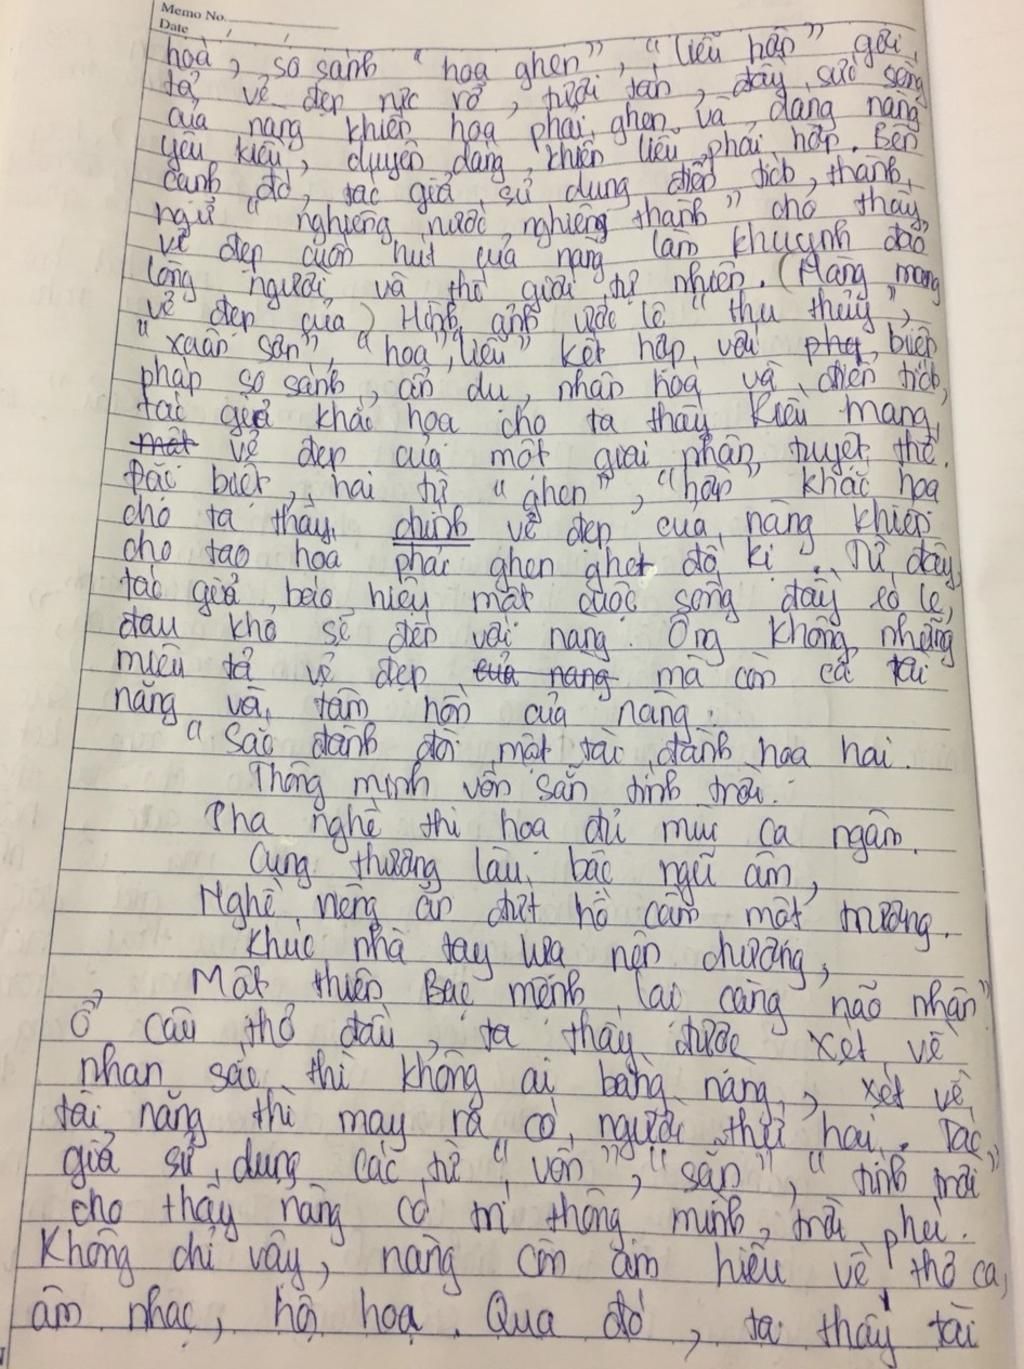 Memo No.
Date / /
hoà, so sánh "hoa ghen", "liễu hờn" gợi
tả vẻ đẹp rực rỡ, tươi tắn, đầy sức sống
của nàng khiến hoa phải ghen và dáng nàng
yêu kiều, duyên dáng khiến liễu phải hờn. Bên
cạnh đó, tác giả sử dụng điển tích, thành
ngữ "nghiêng nước nghiêng thành" cho thấy
vẻ đẹp cuốn hút của nàng làm khuynh đảo
lòng người và thế giới tự nhiên. (Nàng mang
vẻ đẹp của) Hình ảnh ước lệ "thu thủy",
"xuân sơn", "hoa", liễu" kết hợp với phép biện
pháp so sánh, ẩn dụ, nhân hoá và điển tích,
tác giả khắc hoạ cho ta thấy Kiều mang
một vẻ đẹp của một giai nhân tuyệt thế.
Đặc biệt, hai từ "ghen", "hờn" khắc hoạ
cho ta thấy chính vẻ đẹp của nàng khiến
cho tạo hoá phải ghen ghét đố kị. Từ đây,
tác giả báo hiệu một cuộc sống đầy éo le,
đau khổ sẽ đến với nàng. Ông không những
miêu tả vẻ đẹp của nàng mà còn cả tài
năng và tâm hồn của nàng:
"Sắc đành đòi một tài đành hoạ hai.
Thông minh vốn sẵn tính trời.
Pha nghề thi hoạ đủ mùi ca ngâm.
Cung thương làu bậc ngũ âm,
Nghề riêng ăn đứt hồ cầm một trương.
Khúc nhà tay lựa nên chương,
Một thiên Bạc mệnh lại càng não nhân"
Ở câu thơ đầu, ta thấy được xét về
nhan sắc thì không ai bằng nàng, xét về
tài năng thì may ra có người thứ hai. Tác
giả sử dụng các từ "vốn", "sẵn", "tính trời"
cho thấy nàng có trí thông minh trời phú.
Không chỉ vậy, nàng còn am hiểu về thơ ca,
âm nhạc, hội hoạ. Qua đó, ta thấy tài